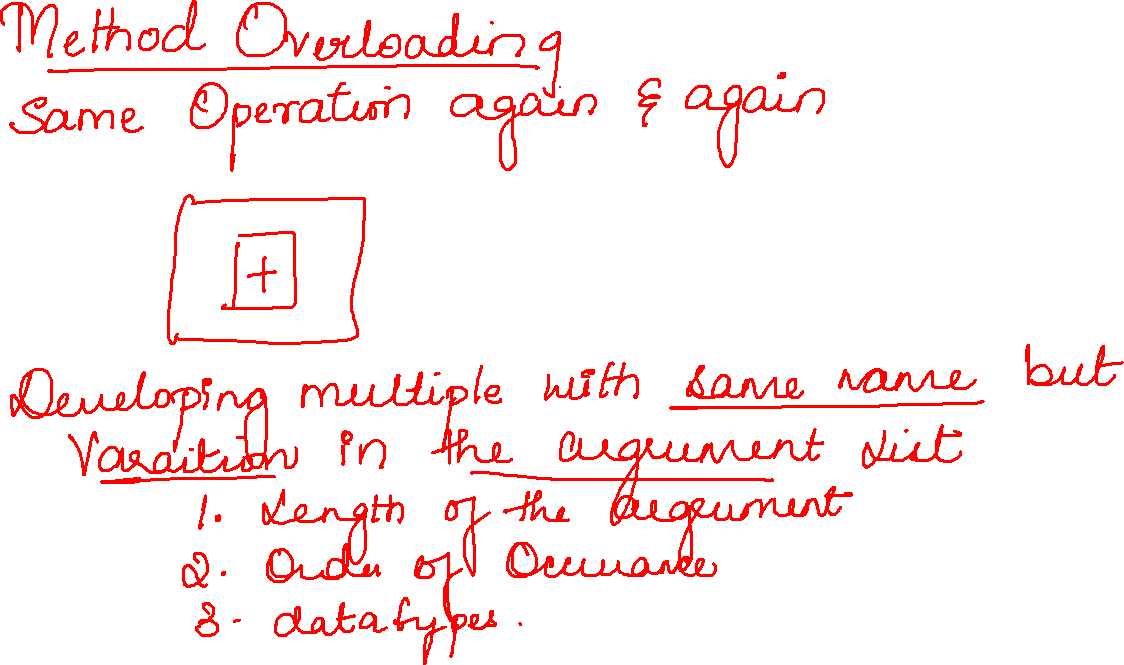 Method Overloading
Same Operation again & again
+
Developing multiple with same name but
Varaition in the argument list
1. Length of the argument
2. Order of Occurance
3. datatypes.